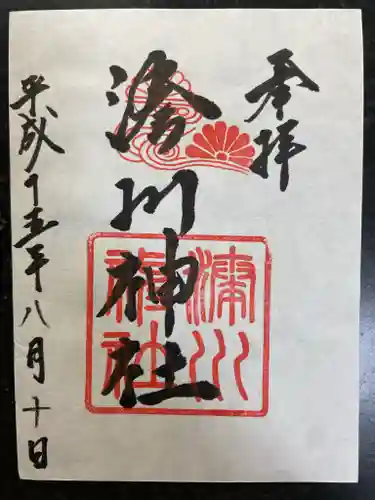 奉拝
湊川神社
湊川
神社
平成十五年八月十日